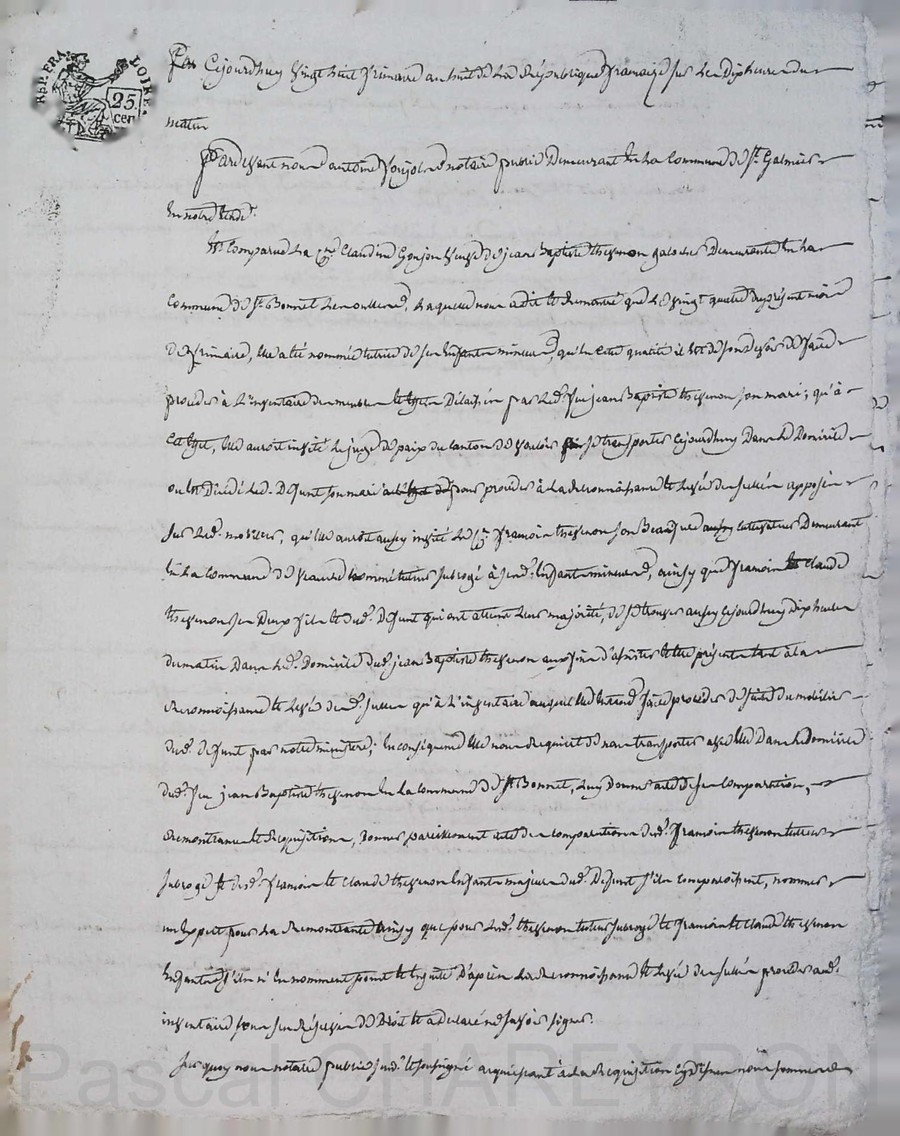 RÉP. FRA. LOIRE.
25 cen
Cejourdhuy vingt huit frimaire an huit de la République française sur les dix heures du
matin
Pardevant nous antoine notaire public Demeurant en la Commune de St. Galmier
En notre Etude.
Est Comparue La Cne. Claudine Goujon veuve de jean Baptiste thevenon galocher Demeurante En La
Commune de St. Bonnet Les oulles, Laquelle nous a dit et Remontré que Le vingt quatre du présent mois
de frimaire, Elle a été nommée tutrice de ses Enfants mineurs, qu'En cette qualité il Est de son devoir de faire
procéder à L'inventaire des meubles et effets Délaissés par Led. feu jean Baptiste thevenon son mari; qu'à
Cet effet, Elle auroit invité Le juge de paix du canton de se transporter Cejourdhuy Dans Le Domicile
ou Est Décédé Led. Defunt son mari pour procéder à La Reconnoissance et Levée des scellés apposés
sur Led. mobilier, qu'elle auroit aussy invité Le Cn. francois thevenon son Beaufrere cultivateur Demeurant
En La Commune de tuteur subrogé à sesd. Enfants mineurs, ainsy que francois et Claude
thevenon ses Deux fils et dud. Defunt qui ont atteint Leur majorité, de se trouver aussy Cejourdhuy dix heures
du matin Dans Led. Domicile dud. jean Baptiste thevenon aux fins d'assister et être présents tant à La
Reconnoissance et Levée desd. scellés qu'à L'inventaire auquel Elle Entend faire procéder de suite du mobilier
dud. Defunt par notre ministère; En conséquence Elle nous Requiert de nous transporter avec Elle Dans Le domicile
dud. feu jean Baptiste thevenon En La Commune de St. Bonnet, Luy Donner acte de sa Comparution,
Remontrance et Requisition, Donner pareillement acte des comparutions dud. francois thevenon tuteur
subrogé et desd. francois et Claude thevenon Enfants majeurs dud. Defunt s'ils comparoissent, nommer
un Expert pour La Remontrante ainsy que pour Led. thevenon tuteur subrogé et francois et Claude thevenon
Enfants s'ils n'En nomment point et Ensuite D'après La Reconnoissance et Levée des scellés procéder aud.
inventaire sous ses Réserves de Droit et a declaré ne savoir signer.
Sur quoy nous notaire public susd. et soussigné acquiesçant à La Requisition Cydessus nous sommes
Pascal CHAREYRON